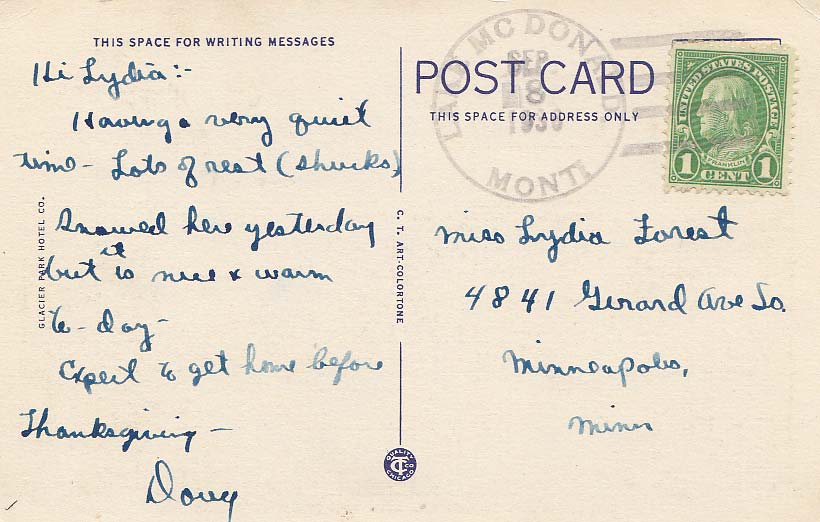 THIS SPACE FOR WRITING MESSAGES
Hi Lydia:-
Having a very quiet
time - Lots of rest (shucks)
Snowed here yesterday
but it is nice & warm
to-day -
Expect to get home before
Thanksgiving -
Doug
GLACIER PARK HOTEL CO.
C. T. ART-COLORTONE
QUALITY
CT CO
CHICAGO
POST CARD
THIS SPACE FOR ADDRESS ONLY
LAKE MC DONALD
SEP
8
MONT.
UNITED STATES POSTAGE
FRANKLIN
1 CENT 1
Miss Lydia Forest
4841 Girard Ave So.
Minneapolis,
Minn